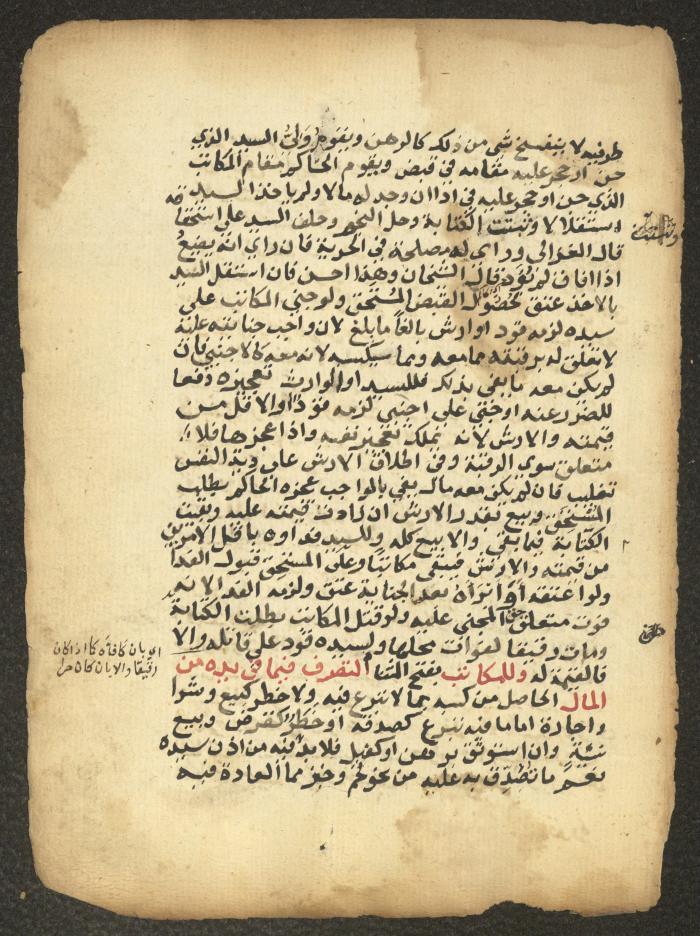 طرفيه لا ينفسخ شي من ذلك كالرهن ويقوم ولي السيد الذي
جن او حجر عليه مقامه في قبض ويقوم الحاكم مقام المكاتب
الذي جن او حجر عليه في اذا ان وجد له مالا ولم ياخذ السيد
استقلالا وثبتت الكتابة وحل النجم وحلف السيد علي استحقاقه
قال الغزالي وراي له مصلحة في الحرية فان راي انه يضيع
اذا افاق لم يؤد قال الشيخان وهذا احسن فان استقل السيد
بالاخذ عتق لحصول القبض المستحق ولو جني المكاتب علي
سيده لزمه قود او ارش بالغا ما بلغ لان واجب جنايته عليه
لا تعلق له برقبته مما معه ومما سيكسبه لانه معه كالاجنبي فان
لم يكن معه ما يفي بذلك فللسيد او الوارث تعجيزه دفعا
للضرر عنه او جني علي اجنبي لزمه قود او الاقل من
قيمته والارش لانه يملك تعجيز نفسه واذا عجزها فلا
متعلق سوي الرقبة وفي اطلاق الارش علي دية النفس
تغليب فان لم يكن معه مال يفي بالواجب عجزه الحاكم بطلب
المستحق وبيع بقدر الارش ان زادت قيمته عليه وبقيت
الكتابة فيما بقي والا بيع كله وللسيد فداوه باقل الامرين
من قيمته والارش فيبقي مكاتبا وعلي المستحق قبول الفدا
ولو اعتقه او ابراه بعد الجناية عتق ولزمه الفدا لانه
فوت متعلق حق المجني عليه ولو قتل المكاتب بطلت الكتابة
ومات رقيقا لفوات محلها ولسيده قود علي قاتله والا
فالقيمة له وللمكاتب بفتح التا التصرف فيما في يده من
المال الحاصل من كسبه بما لا تبرع فيه ولا خطر كبيع وشرا
واجارة اما ما فيه تبرع كصدقة او خطر كقرض وبيع
نسيئة وان استوثق برهن او كفيل فلا بد فيه من اذن سيده
نعم ما تصدق به عليه من نحو لحم وخبز مما العادة فيه
اي بان كافأه كما اذا كان
رقيقا والا بان كان حرا